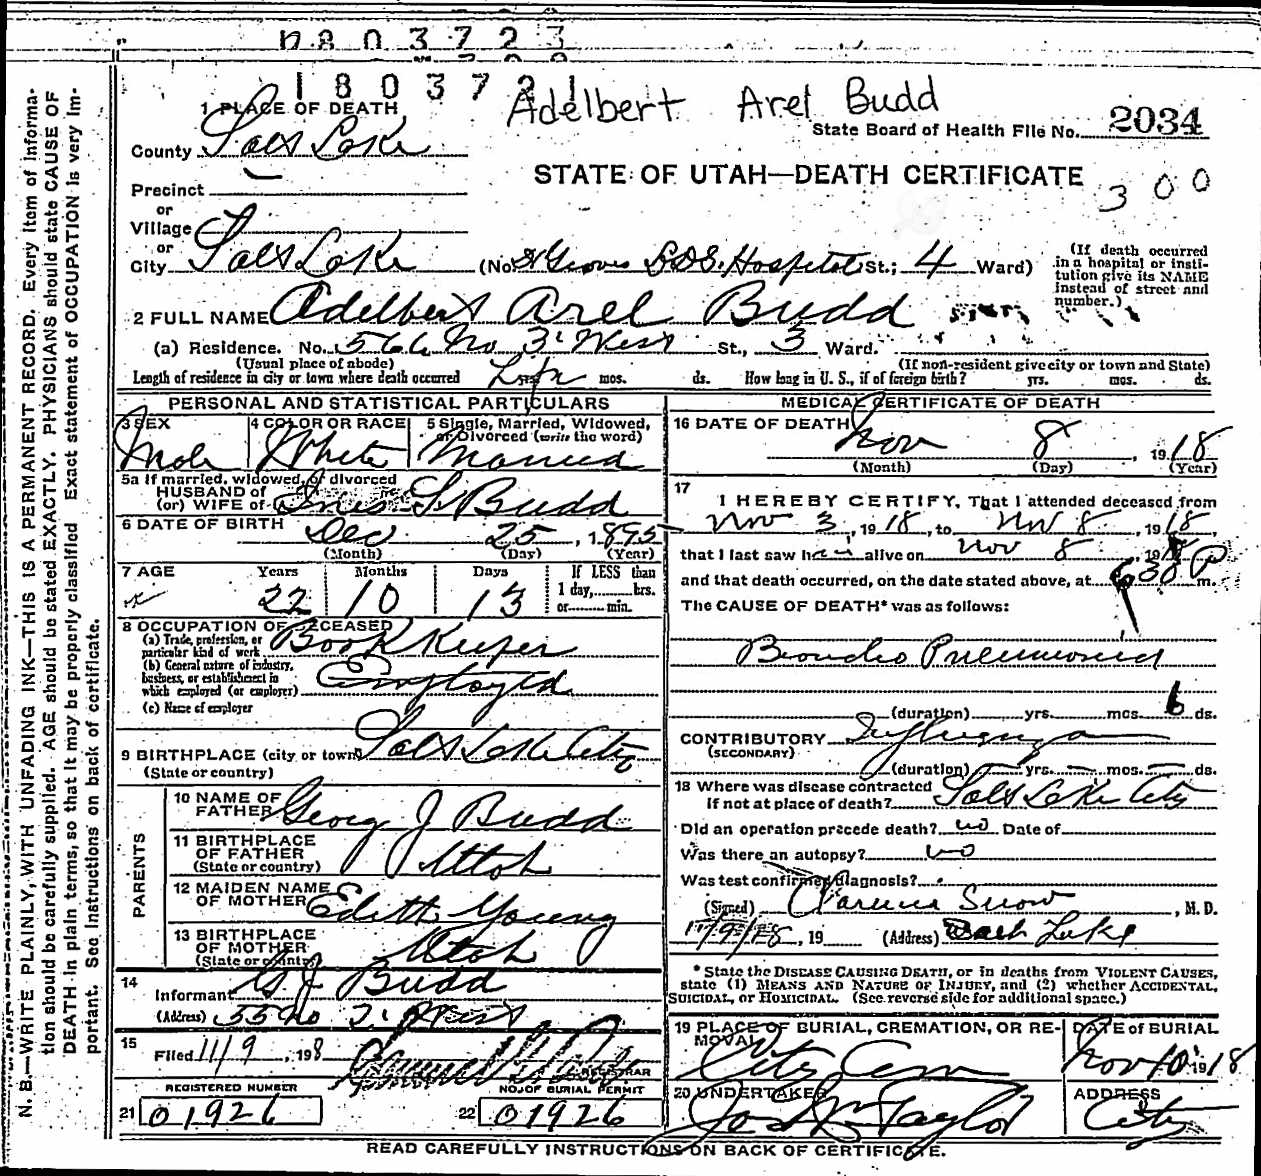 1803723
1803721
Adelbert Arel Budd
1 PLACE OF DEATH
State Board of Health File No. 2034
County Salt Lake
STATE OF UTAH—DEATH CERTIFICATE
300
Precinct
or
Village
or
City Salt Lake (No. Groves L.D.S. Hospital St.; 4 Ward)
(If death occurred in a hospital or institution give its NAME instead of street and number.)
2 FULL NAME Adelbert Arel Budd
(a) Residence. No. 566 No 3 West St., 3 Ward.
(Usual place of abode) (If non-resident give city or town and State)
Length of residence in city or town where death occurred Life mos. ds. How long in U. S., if of foreign birth? yrs. mos. ds.
PERSONAL AND STATISTICAL PARTICULARS
3 SEX Male
4 COLOR OR RACE White
5 Single, Married, Widowed, or Divorced (write the word) Married
5a If married, widowed, or divorced
HUSBAND of
(or) WIFE of Ines S. Budd
6 DATE OF BIRTH Dec 25, 1895
(Month) (Day) (Year)
7 AGE Years 22 Months 10 Days 13
If LESS than 1 day,........hrs. or........min.
8 OCCUPATION OF DECEASED
(a) Trade, profession, or particular kind of work Book Keeper
(b) General nature of industry, business, or establishment in which employed (or employer) Employed
(c) Name of employer
9 BIRTHPLACE (city or town) Salt Lake City
(State or country)
PARENTS
10 NAME OF FATHER Georg J Budd
11 BIRTHPLACE OF FATHER (State or country) Utah
12 MAIDEN NAME OF MOTHER Edith Young
13 BIRTHPLACE OF MOTHER (State or country) Utah
14 Informant G. J. Budd
(Address) 55 No
15 Filed 11/9, 1918
REGISTRAR
REGISTERED NUMBER NO. OF BURIAL PERMIT
21 01926 22 01926
MEDICAL CERTIFICATE OF DEATH
16 DATE OF DEATH Nov 8, 1918
(Month) (Day) (Year)
17 I HEREBY CERTIFY, That I attended deceased from
Nov 3, 1918, to Nov 8, 1918
that I last saw him alive on Nov 8, 1918
and that death occurred, on the date stated above, at 6 30 P m.
The CAUSE OF DEATH* was as follows:
Broncho Pneumonia
(duration) yrs. mos. 6 ds.
CONTRIBUTORY Influenza
(SECONDARY)
(duration) — yrs. — mos. — ds.
18 Where was disease contracted
if not at place of death? Salt Lake City
Did an operation precede death? no Date of
Was there an autopsy? no
Was test confirmed diagnosis?
(Signed) Clarence Snow, M. D.
11/9/18, 19 (Address) Salt Lake
* State the DISEASE CAUSING DEATH, or in deaths from VIOLENT CAUSES,
state (1) MEANS AND NATURE OF INJURY, and (2) whether ACCIDENTAL,
SUICIDAL, or HOMICIDAL. (See reverse side for additional space.)
19 PLACE OF BURIAL, CREMATION, OR REMOVAL City Cem
DATE of BURIAL Nov 10 1918
20 UNDERTAKER Jos Wm Taylor
ADDRESS City
READ CAREFULLY INSTRUCTIONS ON BACK OF CERTIFICATE.
N. B.—WRITE PLAINLY, WITH UNFADING INK—THIS IS A PERMANENT RECORD. Every item of information should be carefully supplied. AGE should be stated EXACTLY. PHYSICIANS should state CAUSE OF DEATH in plain terms, so that it may be properly classified. Exact statement of OCCUPATION is very important. See instructions on back of certificate.